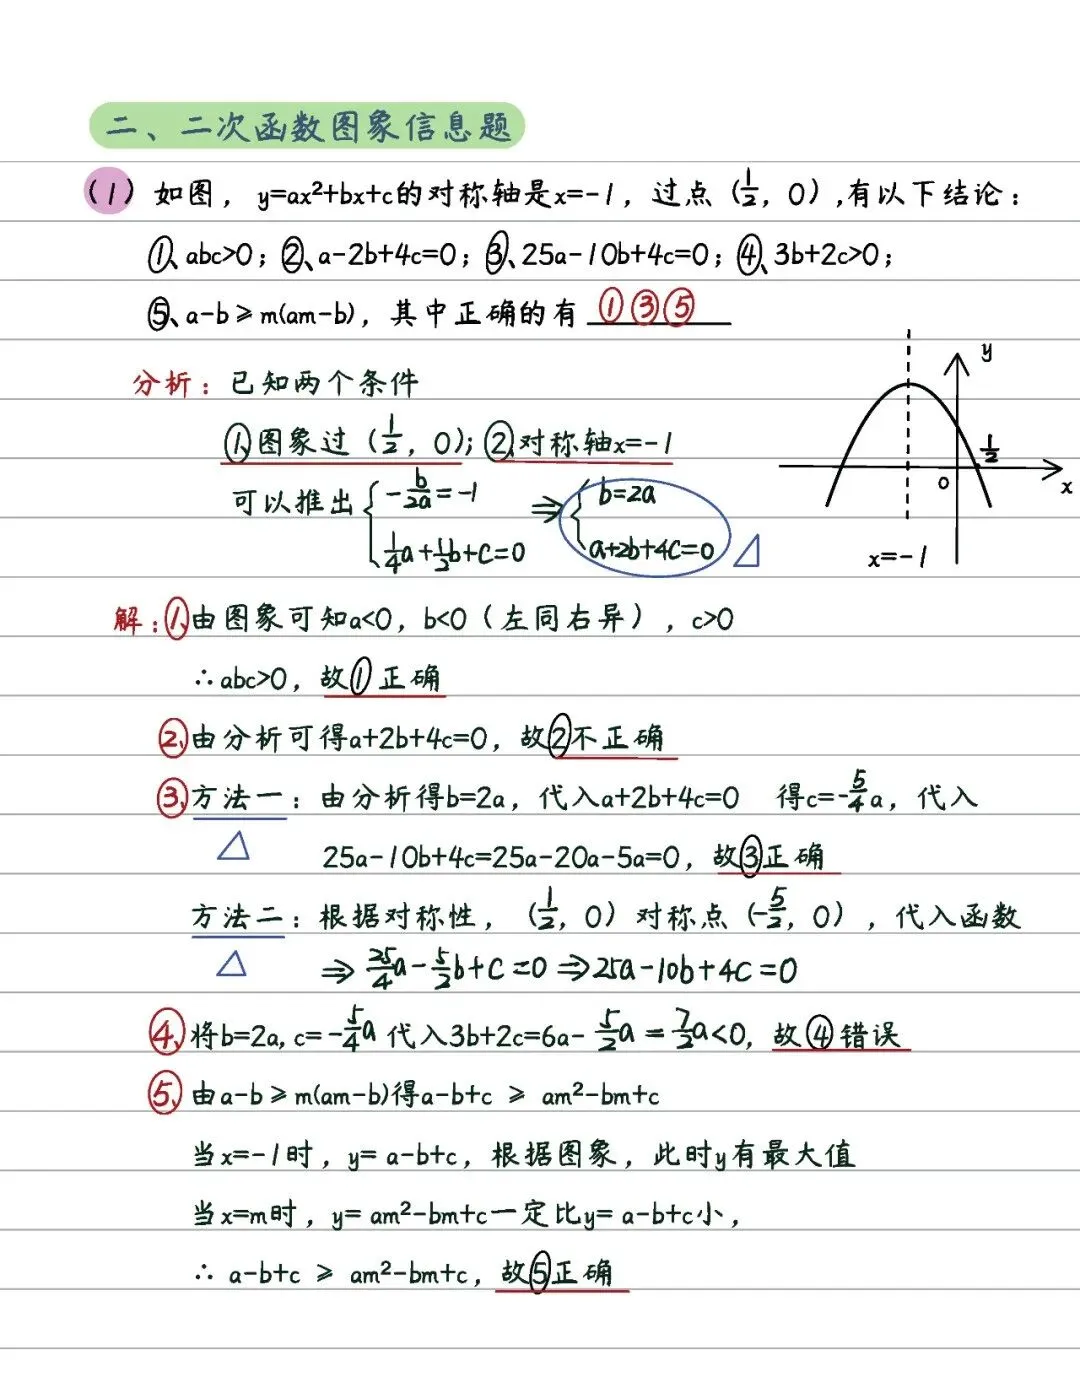 二、二次函数图象信息题
(1) 如图，y=ax²+bx+c的对称轴是x=-1，过点（1/2，0）,有以下结论：
①、abc>0；②、a-2b+4c=0；③、25a-10b+4c=0；④、3b+2c>0；
⑤、a-b≥m(am-b)，其中正确的有 ①③⑤
y
1/2
0
x
x=-1
分析：已知两个条件
①、图象过（1/2，0）；②、对称轴x=-1
可以推出 { -b/2a=-1 ⇒ { b=2a
1/4a+1/2b+C=0 a+2b+4C=0
解：①、由图象可知a<0，b<0（左同右异），c>0
∴abc>0，故①正确
②、由分析可得a+2b+4c=0，故②不正确
③、方法一：由分析得b=2a，代入a+2b+4c=0 得c=-5/4a，代入
25a-10b+4c=25a-20a-5a=0，故③正确
方法二：根据对称性，（1/2，0）对称点（-5/2，0），代入函数
⇒ 25/4a-5/2b+C=0⇒25a-10b+4C=0
④、将b=2a, c=-5/4a 代入3b+2c=6a-5/2a=7/2a<0，故④错误
⑤、由a-b≥m(am-b)得a-b+c ≥ am²-bm+c
当x=-1时，y= a-b+c，根据图象，此时y有最大值
当x=m时，y= am²-bm+c一定比y= a-b+c小，
∴ a-b+c ≥ am²-bm+c，故⑤正确